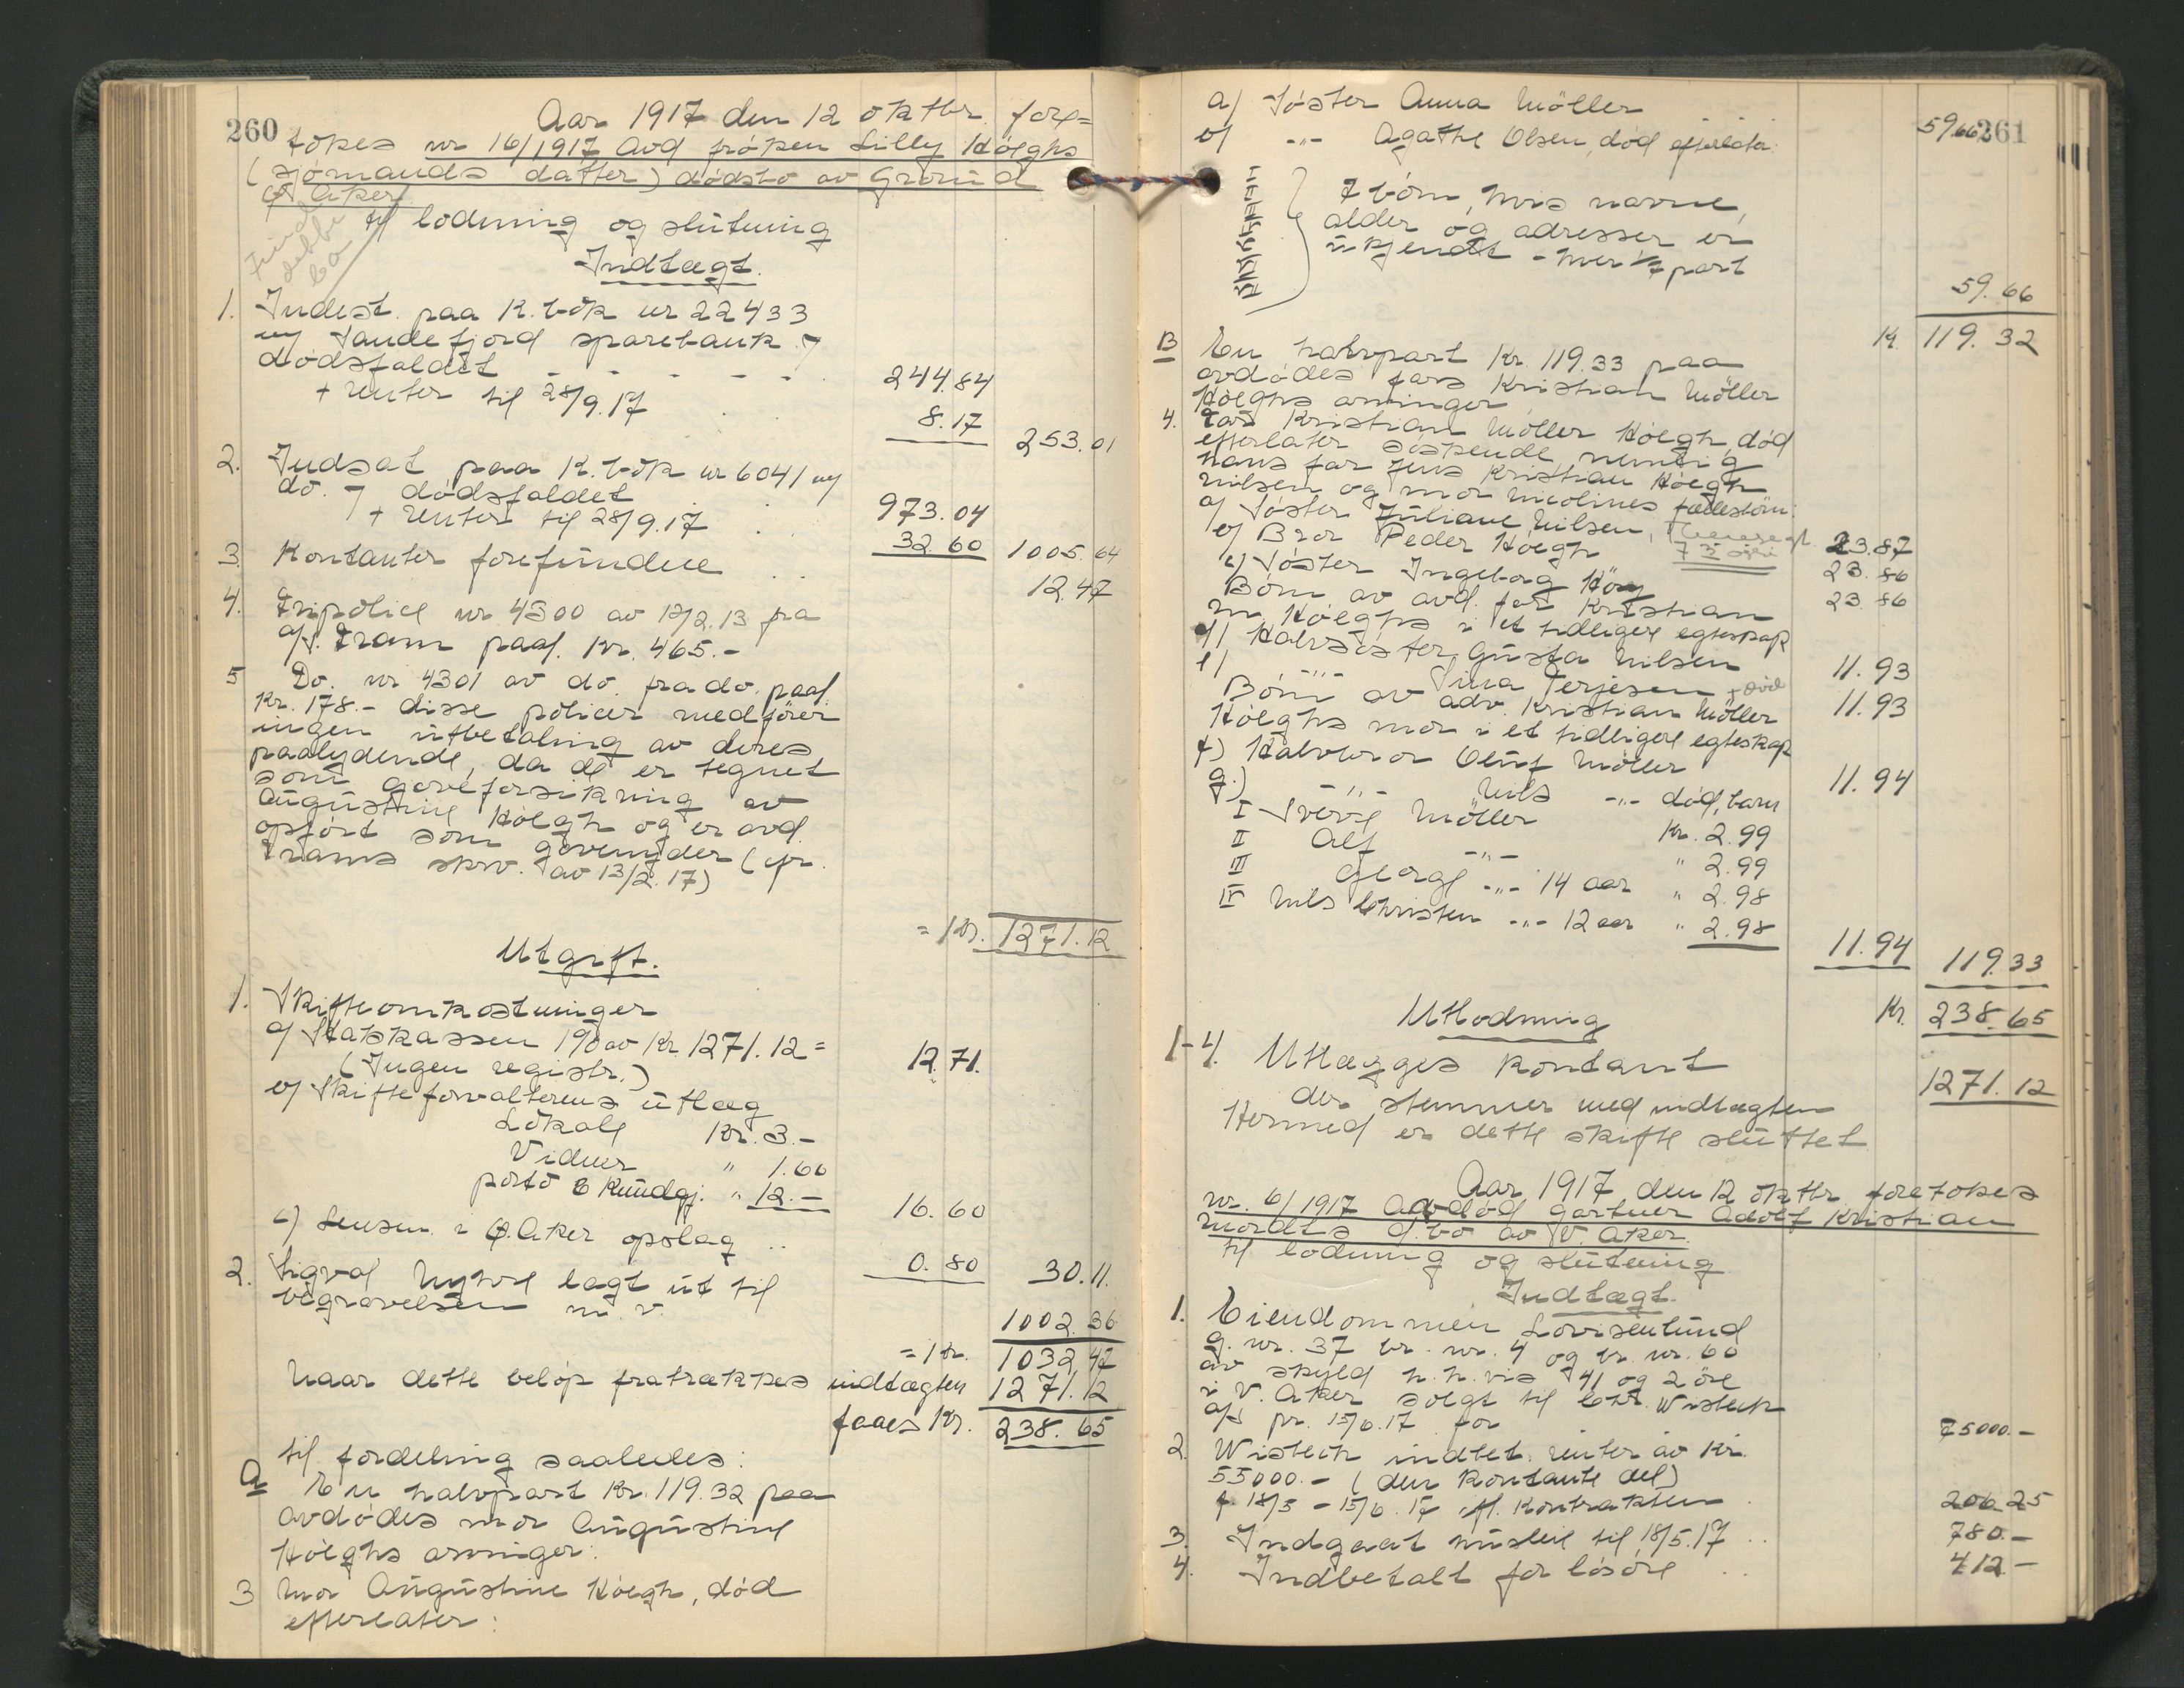 260
Aar 1917 den 12 oktbr. fore=
tokes nr 16/1917 Avd frøken Lilly Höeghs
(sjømands datter) dödsbo av Grorud
Ø. Aker
til lodning og slutning
Indtægt.
1. Indest. paa K. bok nr 22433
m/ Sandefjord sparebank v/
dødsfaldet - - - - - 244.84
+ renter til 28/9.17 8.17 253.01
2. Indsat paa K. bok nr 6041 m/
do. v/ dödsfaldet 973.04
+ renter til 28/9.17 32.60 1005.64
3. Kontanter forefundne .. 12.47
4. Fripolice nr 4300 av 12/2.13 fra
A/S. Fram paal. Kr. 465.-
5 Do. nr 4301 av do. fra do. paal.
Kr. 178.- disse policer medförer
ingen utbetaling av deres
paalydende, da de er tegnet
som gaveforsikring av
Augustine Höegh og er avd.
opført som gavenyder (cfr.
Frams skrv. av 13/2.17)
= Kr. 1271.12
Utgift.
1. Skifteomkostninger
a/ Statskassen 1% av Kr. 1271.12 = 12.71.
(Ingen registr.)
b/ Skifteforvalterens utlæg
Lokale Kr. 3.-
Vidner " 1.60
porto & Kundgj. " 12.- 16.60
c) Lensm. i Ø. Aker opslag .. 0.80 30.11.
2. Sigval lagt ut til
begravelsen m. v. 1002.36
= Kr. 1032.47
Naar dette beløp fratrækkes indtægten 1271.12
faaes Kr. 238.65
til fordeling saaledes:
A En halvpart Kr. 119.32 paa
avdødes mor Augustine
Höeghs arvinger:
3 Mor Augustine Höegh, död
efterlater:
261
a/ Søster Anna Möller 59.66
b/ -"- Agathe Olsen, död efterlater:
7 börn, hvis navne,
alder og adresser er
ukjendt - hver 1/7 part
59.66
Kr. 119.32
B En halvpart Kr. 119.33 paa
avdödes fars Kristian Möller
Höeghs arvinger
4. Far Kristian Möller Höegh, død
efterlater søskende, nemlig
hans far Jens Kristian Höegh
Nilsen og mor Nicolines fællesbörn:
a/ Søster Juliane Nilsen, 23.87
b/ Bror Peder Höegh 23.86
c/ Søster Ingeborg Höeg 23.86
Börn av avd. far Kristian
M. Höeghs i et tidligere egteskap
d/ Halvsøster, Gusta Nilsen 11.93
e/ -"- Sina Terjesen + död 11.93
Börn av adv. Kristian Möller
Höeghs mor i et tidligere egteskap
f) Halvbror Oluf Möller 11.94
g.) -"- Nils -"- død, barn
I Sverre Möller Kr. 2.99
II Alf -"- " 2.99
III Georg -"- 14 aar " 2.98
IV Nils Christen -"- 12 aar " 2.98
11.94 119.33
Kr. 238.65
Utlodning
1-4. Utlægges kontant 1271.12
der stemmer med indtægten
Hermed er dette skifte sluttet
Aar 1917 den 12 oktbr. foretokes
nr. 6/1917 Avdød gartner Adolf Kristian
d. bo av V. Aker.
til lodning og slutning
Indtægt.
1. Eiendommen Lovisenlund
g. nr. 37 br. nr. 4 og br. nr. 60
av skyld h.h.vis 41 og 2 öre
i V. Aker solgt til Chr. Wisbech
A/S pr. 15/6.17 for 75000.-
2. Wisbech indbet. renter av Kr.
55000.- (den Kontante del)
f. 18/5 - 15/6.17 ifl. Kontrakten . 206.25
3. Indgaat husleie til 18/5.17 .. 780.-
4. Indbetalt for løsøre .. 412.-